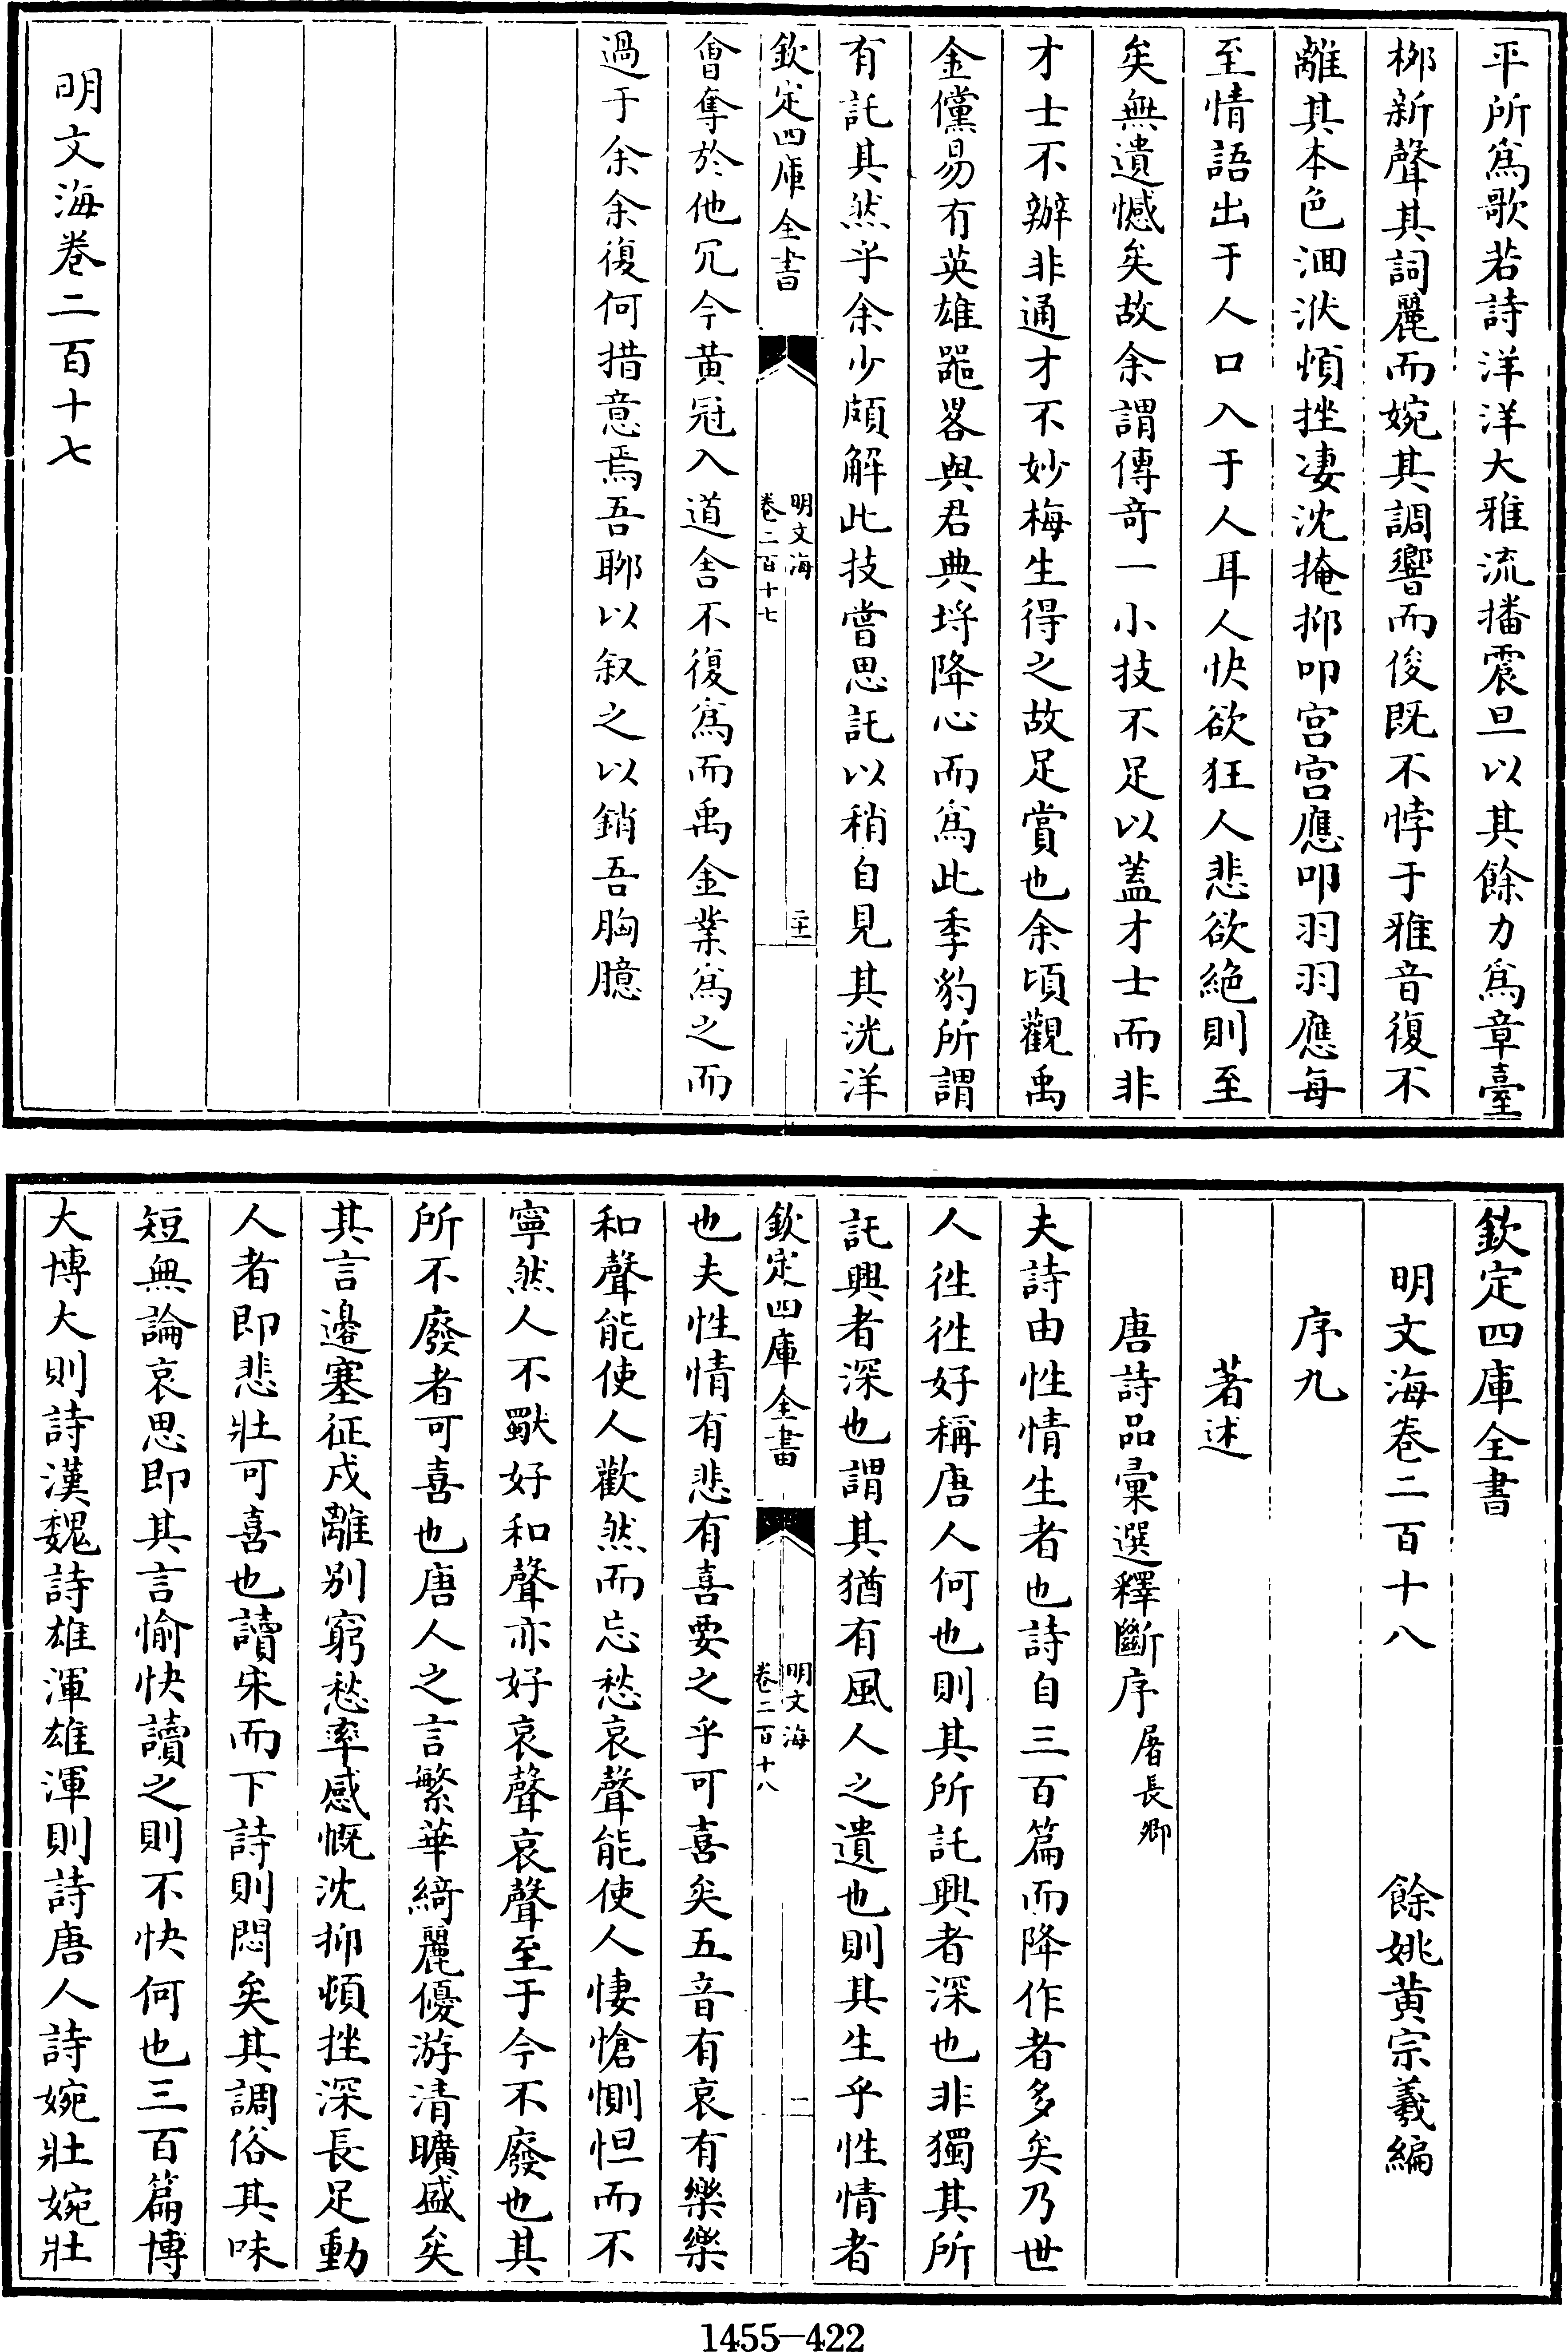 平所為歌若詩洋洋大雅流播震旦以其餘力為章臺
栁新聲其詞麗而婉其調響而俊既不悖于雅音復不
離其本色洄洑頓挫凄沈掩抑叩宫宫應叩羽羽應每
至情語出于人口入于人耳人快欲狂人悲欲絶則至
矣無遺憾矣故余謂傳奇一小技不足以蓋才士而非
才士不辦非通才不妙梅生得之故足賞也余頃觀禹
金儻易有英雄噐畧與君典埒降心而為此季豹所謂
有託其然乎余少頗解此技嘗思託以稍自見其洸洋
欽定四庫全書
明文海
卷二百十七
二十一
會奪於他冗今黄冠入道舎不復為而禹金業為之而
過于余余復何措意焉吾聊以叙之以銷吾胸臆
明文海卷二百十七
欽定四庫全書
明文海卷二百十八
餘姚黄宗羲編
序九
著述
唐詩品彙選釋斷序 屠長卿
夫詩由性情生者也詩自三百篇而降作者多矣乃世
人徃徃好稱唐人何也則其所託興者深也非獨其所
託興者深也謂其猶有風人之遺也則其生乎性情者
欽定四庫全書
明文海
卷二百十八
二
也夫性情有悲有喜要之乎可喜矣五音有哀有樂樂
和聲能使人歡然而忘愁哀聲能使人悽愴惻怛而不
寧然人不獸好和聲亦好哀聲哀聲至于今不廢也其
所不廢者可喜也唐人之言繁華綺麗優游清曠盛矣
其言邊塞征戍離别窮愁率感慨沈抑頓挫深長足動
人者即悲壯可喜也讀宋而下詩則悶矣其調俗其味
短無論哀思即其言愉快讀之則不快何也三百篇博
大博大則詩漢魏詩雄渾雄渾則詩唐人詩婉壯婉壯
1455—422